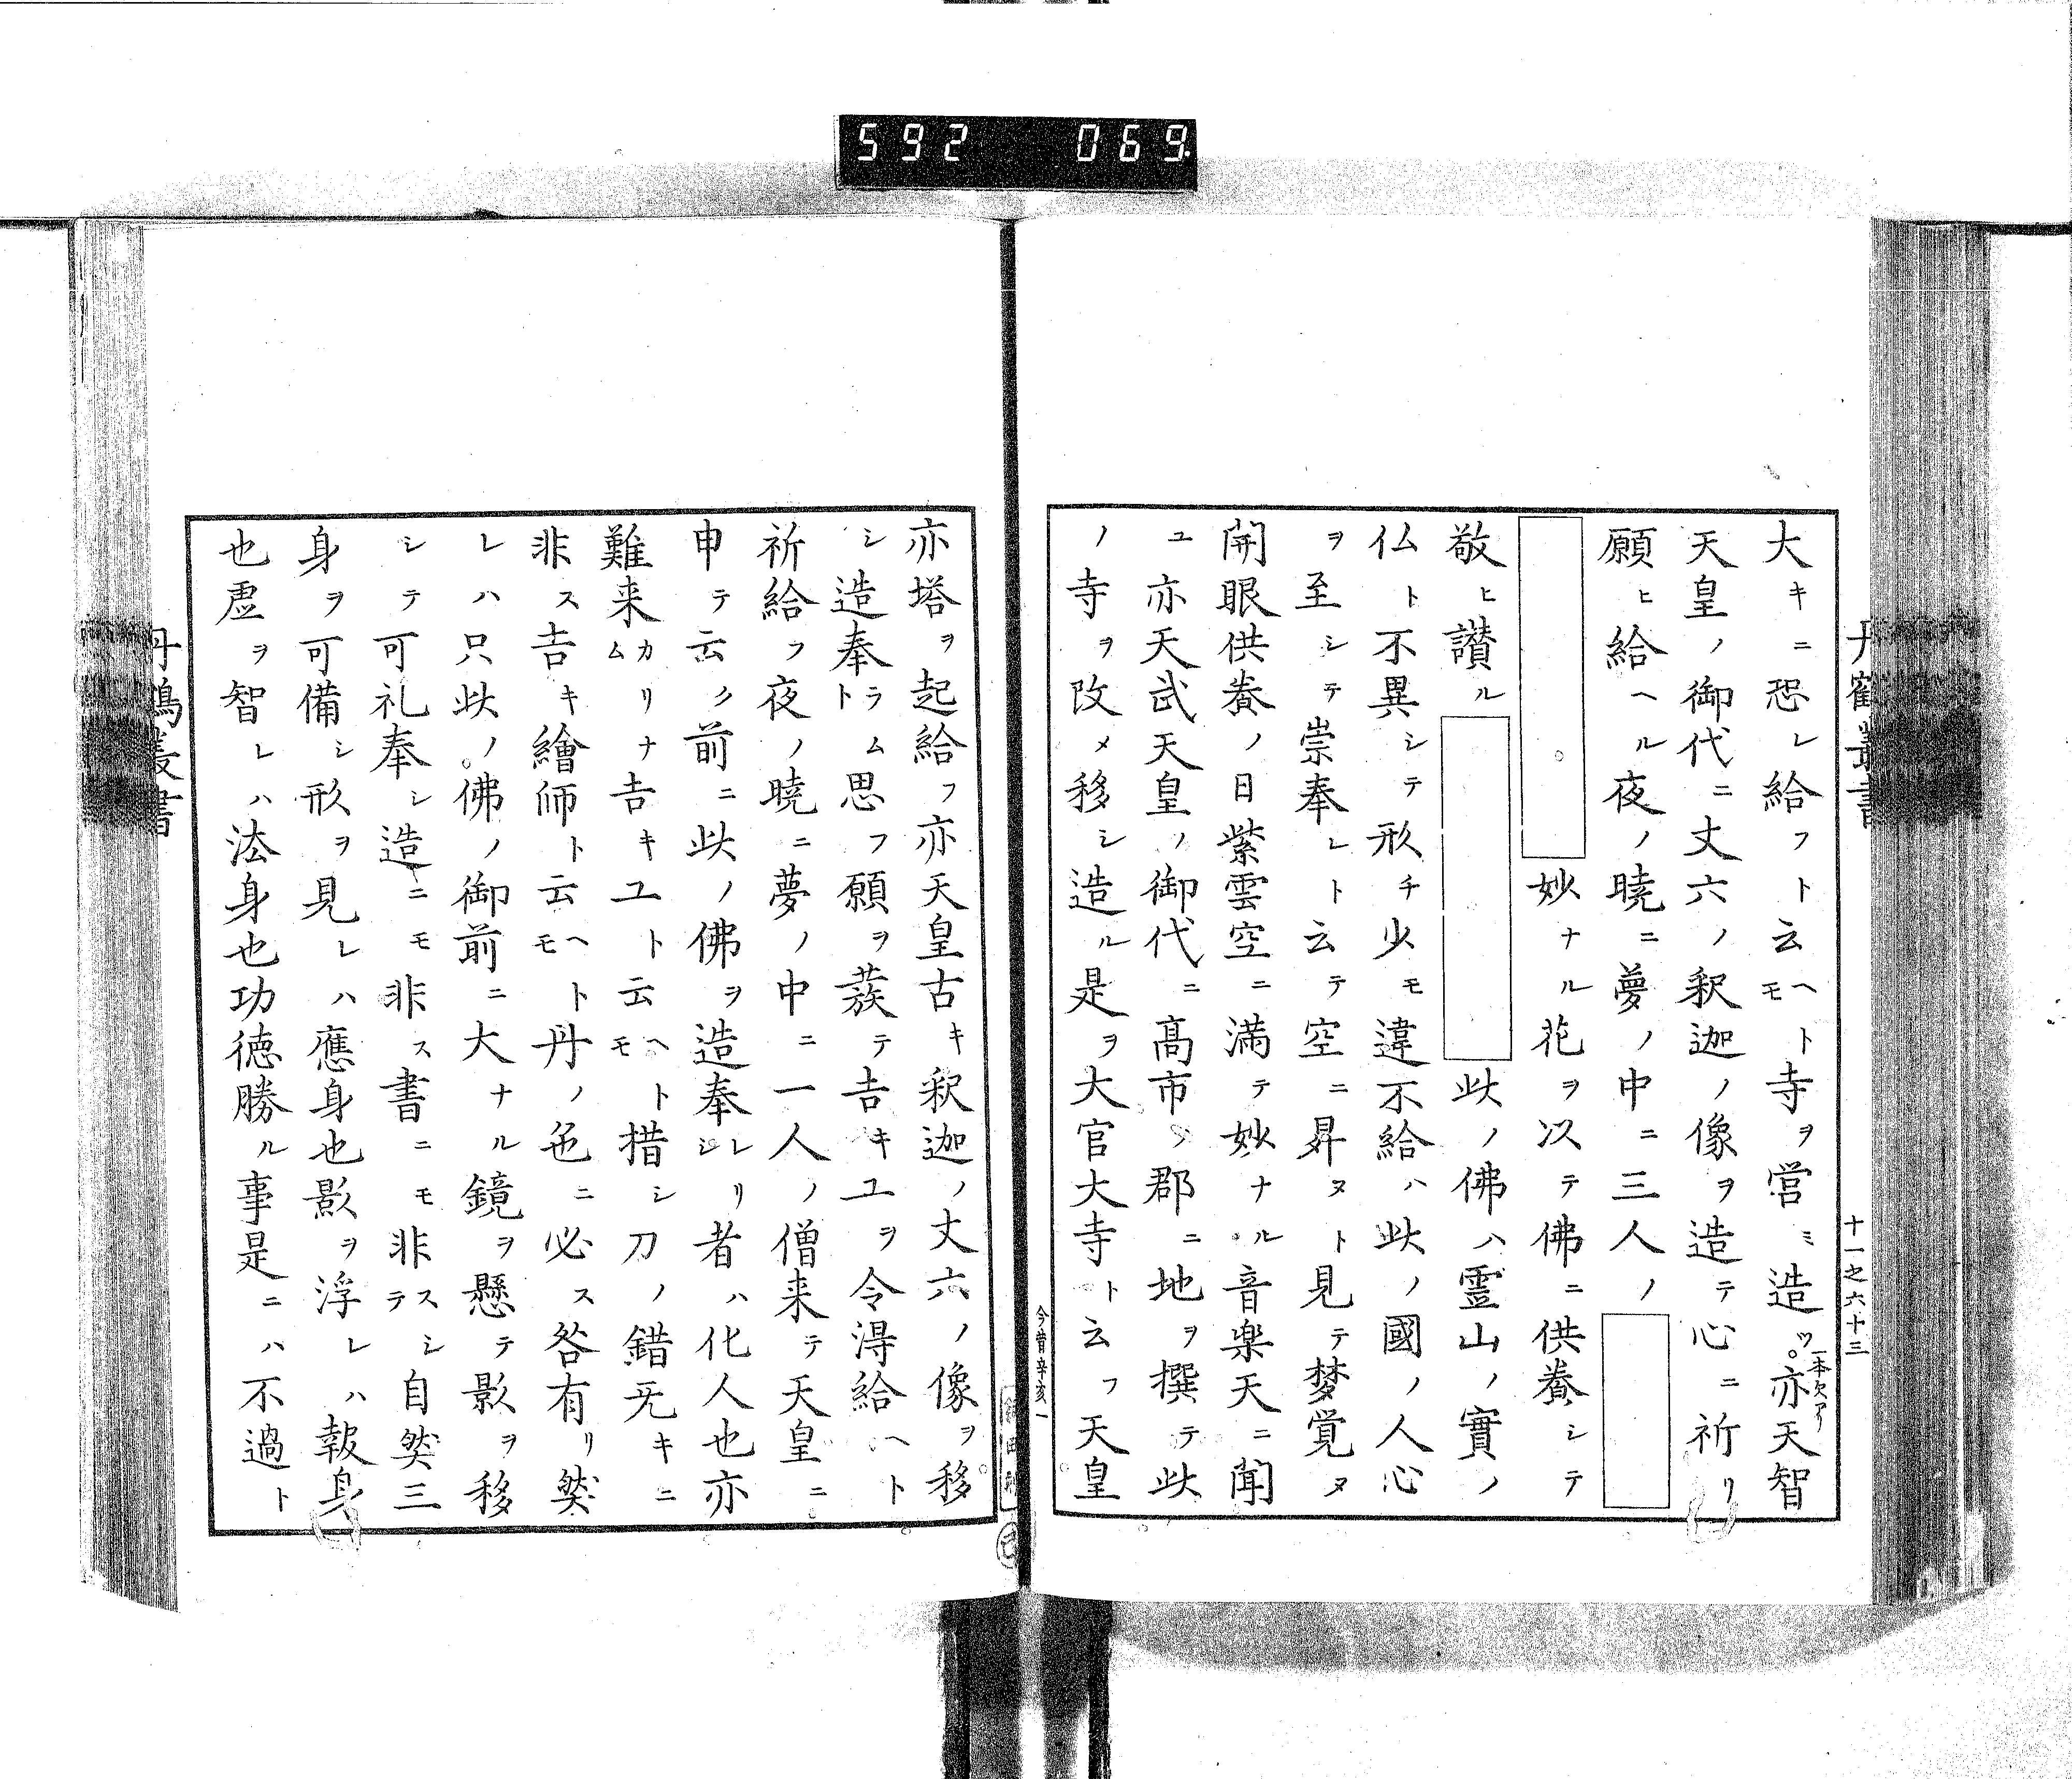 592 069
丹鶴叢書
十一之六十三
大キニ恐レ給フト云ヘトモ寺ヲ営ミ造ツ。一本欠アリ亦天智
天皇ノ御代ニ丈六ノ釈迦ノ像ヲ造テ心ニ祈リ
願ヒ給ヘル夜ノ暁ニ夢ノ中ニ三人ノ
妙ナル花ヲ以テ佛ニ供養シテ
敬ヒ讃ル 此ノ佛ハ霊山ノ實ノ
仏ト不異シテ形チ少モ違不給ハ此ノ國ノ人心
ヲ至シテ崇奉レト云テ空ニ昇ヌト見テ梦覚ヌ
開眼供養ノ日紫雲空ニ満テ妙ナル音楽天ニ聞
ユ亦天武天皇ノ御代ニ髙市ノ郡ニ地ヲ撰テ此
ノ寺ヲ改メ移シ造ル是ヲ大官大寺ト云フ天皇
今昔辛亥一
亦塔ヲ起給フ亦天皇古キ釈迦ノ丈六ノ像ヲ移
シ造奉ラムト思フ願ヲ發テ吉キエヲ令得給ヘト
祈給フ夜ノ暁ニ夢ノ中ニ一人ノ僧来テ天皇ニ
申テ云ク前ニ此ノ佛ヲ造奉レリシ者ハ化人也亦
難来カリナム吉キエト云ヘトモ措シ刀ノ錯无キニ
非ス吉キ繪師ト云ヘトモ丹ノ色ニ必ス咎有リ然
レハ只此ノ佛ノ御前ニ大ナル鏡ヲ懸テ影ヲ移
シテ可礼奉シ造ニモ非ス書ニモ非スシテ自然三
身ヲ可備シ形ヲ見レハ應身也影ヲ浮レハ報身
也虚ヲ智レハ法身也功徳勝ル事是ニハ不過ト
丹鶴叢書